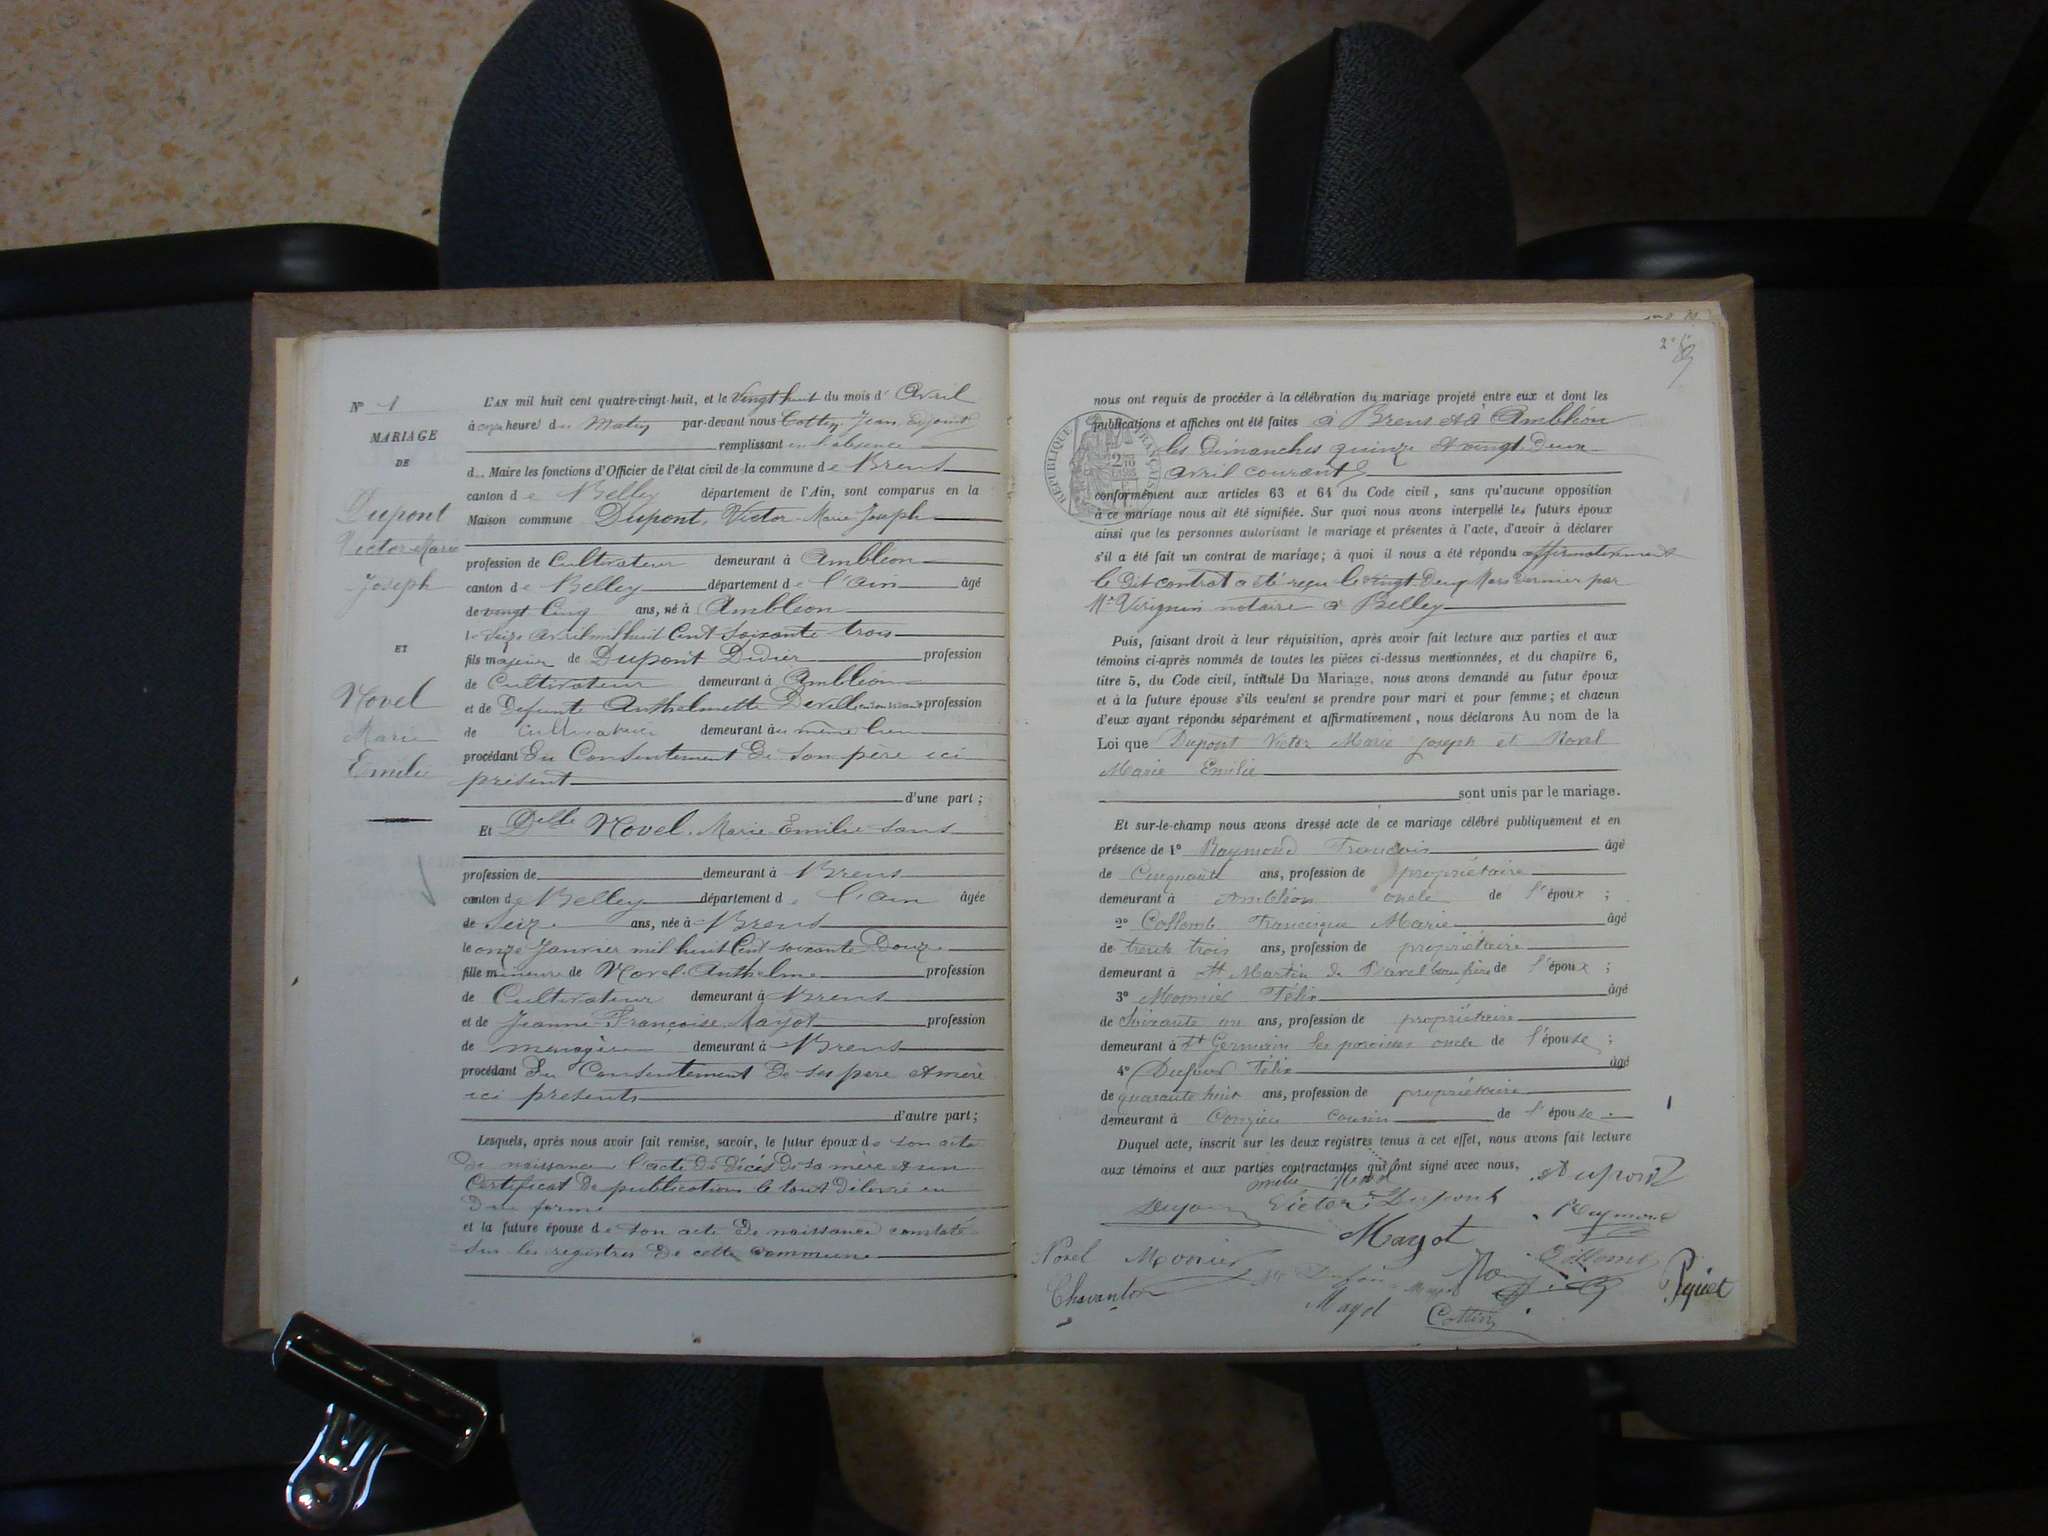 N° 1
MARIAGE
DE
Dupont
Victor Marie
Joseph
ET
Novel
Marie
Emilie
L'AN mil huit cent quatre-vingt-huit, et le vingt huit du mois d' Avril
à onze heure du Matin par-devant nous Cottin Jean adjoint
remplissant en l'absence
d Maire les fonctions d'Officier de l'état civil de la commune de Brens
canton de Belley département de l'Ain, sont comparus en la
Maison commune Dupont, Victor-Marie-Joseph
profession de Cultivateur demeurant à Ambléon
canton de Belley département de l'ain âgé
de vingt Cinq ans, né à Ambléon
le seize avril mil huit Cent soixante trois
fils majeur de Dupont Didier profession
de Cultivateur demeurant à Ambléon
et de Defunte Anthelmette profession
de cultivateur demeurant au même lieu
procédant Du Consentement De son père ici
présent
d'une part ;
Et Delle Novel, Marie-Emilie sans
profession de demeurant à Brens
canton de Belley département de l'ain âgée
de Seize ans, née à Brens
le onze Janvier mil huit Cent soixante Douze
fille mineure de Novel Anthelme profession
de Cultivateur demeurant à Brens
et de Jeanne-Françoise Mayot profession
de menagère demeurant à Brens
procédant Du Consentement De ses père et mère
ici présents
d'autre part ;
Lesquels, après nous avoir fait remise, savoir, le futur époux de son acte
De naissance l'acte De décès De sa mère et un
Certificat De publications le tout délivré en
Due forme
et la future épouse de son acte De naissance constaté
sur les registres De cette commune
2e f
nous ont requis de procéder à la célébration du mariage projeté entre eux et dont les
publications et affiches ont été faites à Brens et à Ambléon
les Dimanches quinze et vingt Deux
avril courant
RÉPUBLIQUE FRANÇAISE
conformément aux articles 63 et 64 du Code civil, sans qu'aucune opposition
à ce mariage nous ait été signifiée. Sur quoi nous avons interpellé les futurs époux
ainsi que les personnes autorisant le mariage et présentes à l'acte, d'avoir à déclarer
s'il a été fait un contrat de mariage ; à quoi il nous a été répondu affirmativement
le Dit contrat a été reçu le vingt Deux Mars dernier par
Me Virignin notaire à Belley
Puis, faisant droit à leur réquisition, après avoir fait lecture aux parties et aux
témoins ci-après nommés de toutes les pièces ci-dessus mentionnées, et du chapitre 6,
titre 5, du Code civil, intitulé Du Mariage, nous avons demandé au futur époux
et à la future épouse s'ils veulent se prendre pour mari et pour femme ; et chacun
d'eux ayant répondu séparément et affirmativement, nous déclarons Au nom de la
Loi que Dupont Victor Marie Joseph et Novel
Marie Emilie
sont unis par le mariage.
Et sur-le-champ nous avons dressé acte de ce mariage célébré publiquement et en
présence de 1° Raymond François âgé
de Cinquante ans, profession de propriétaire
demeurant à Ambléon oncle de l'époux ;
2° Collomb Francisque Marie âgé
de trente trois ans, profession de propriétaire
demeurant à St Martin de Bavel beau frère de l'époux ;
3° Monnier Félix âgé
de Soixante un ans, profession de propriétaire
demeurant à St Germain les paroisses oncle de l'épouse ;
4° Dufour Félix âgé
de quarante huit ans, profession de propriétaire
demeurant à Conzieu cousin de l'épouse .
Duquel acte, inscrit sur les deux registres tenus à cet effet, nous avons fait lecture
aux témoins et aux parties contractantes qui ont signé avec nous.
Emilie Novel Dupont
Victor Dupont Raymond
Mayot
Novel Monier Collomb
Chavanton Piguet
Mayot Cottin